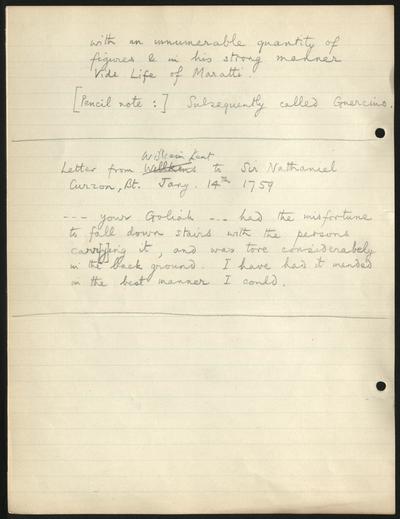 with an innumerable quantity of
figures & in his strong manner
Vide Life of Maratti.
[Pencil note :] Subsequently called Guercino.
William Kent
Letter from Willkens to Sir Nathaniel
Curzon, Bt. Jany. 14th 1759
--- your Goliah --- had the misfortune
to fall down stairs with the persons
carr[y]ing it, and was tore considerabely
in the back ground. I have had it mended
in the best manner I could.